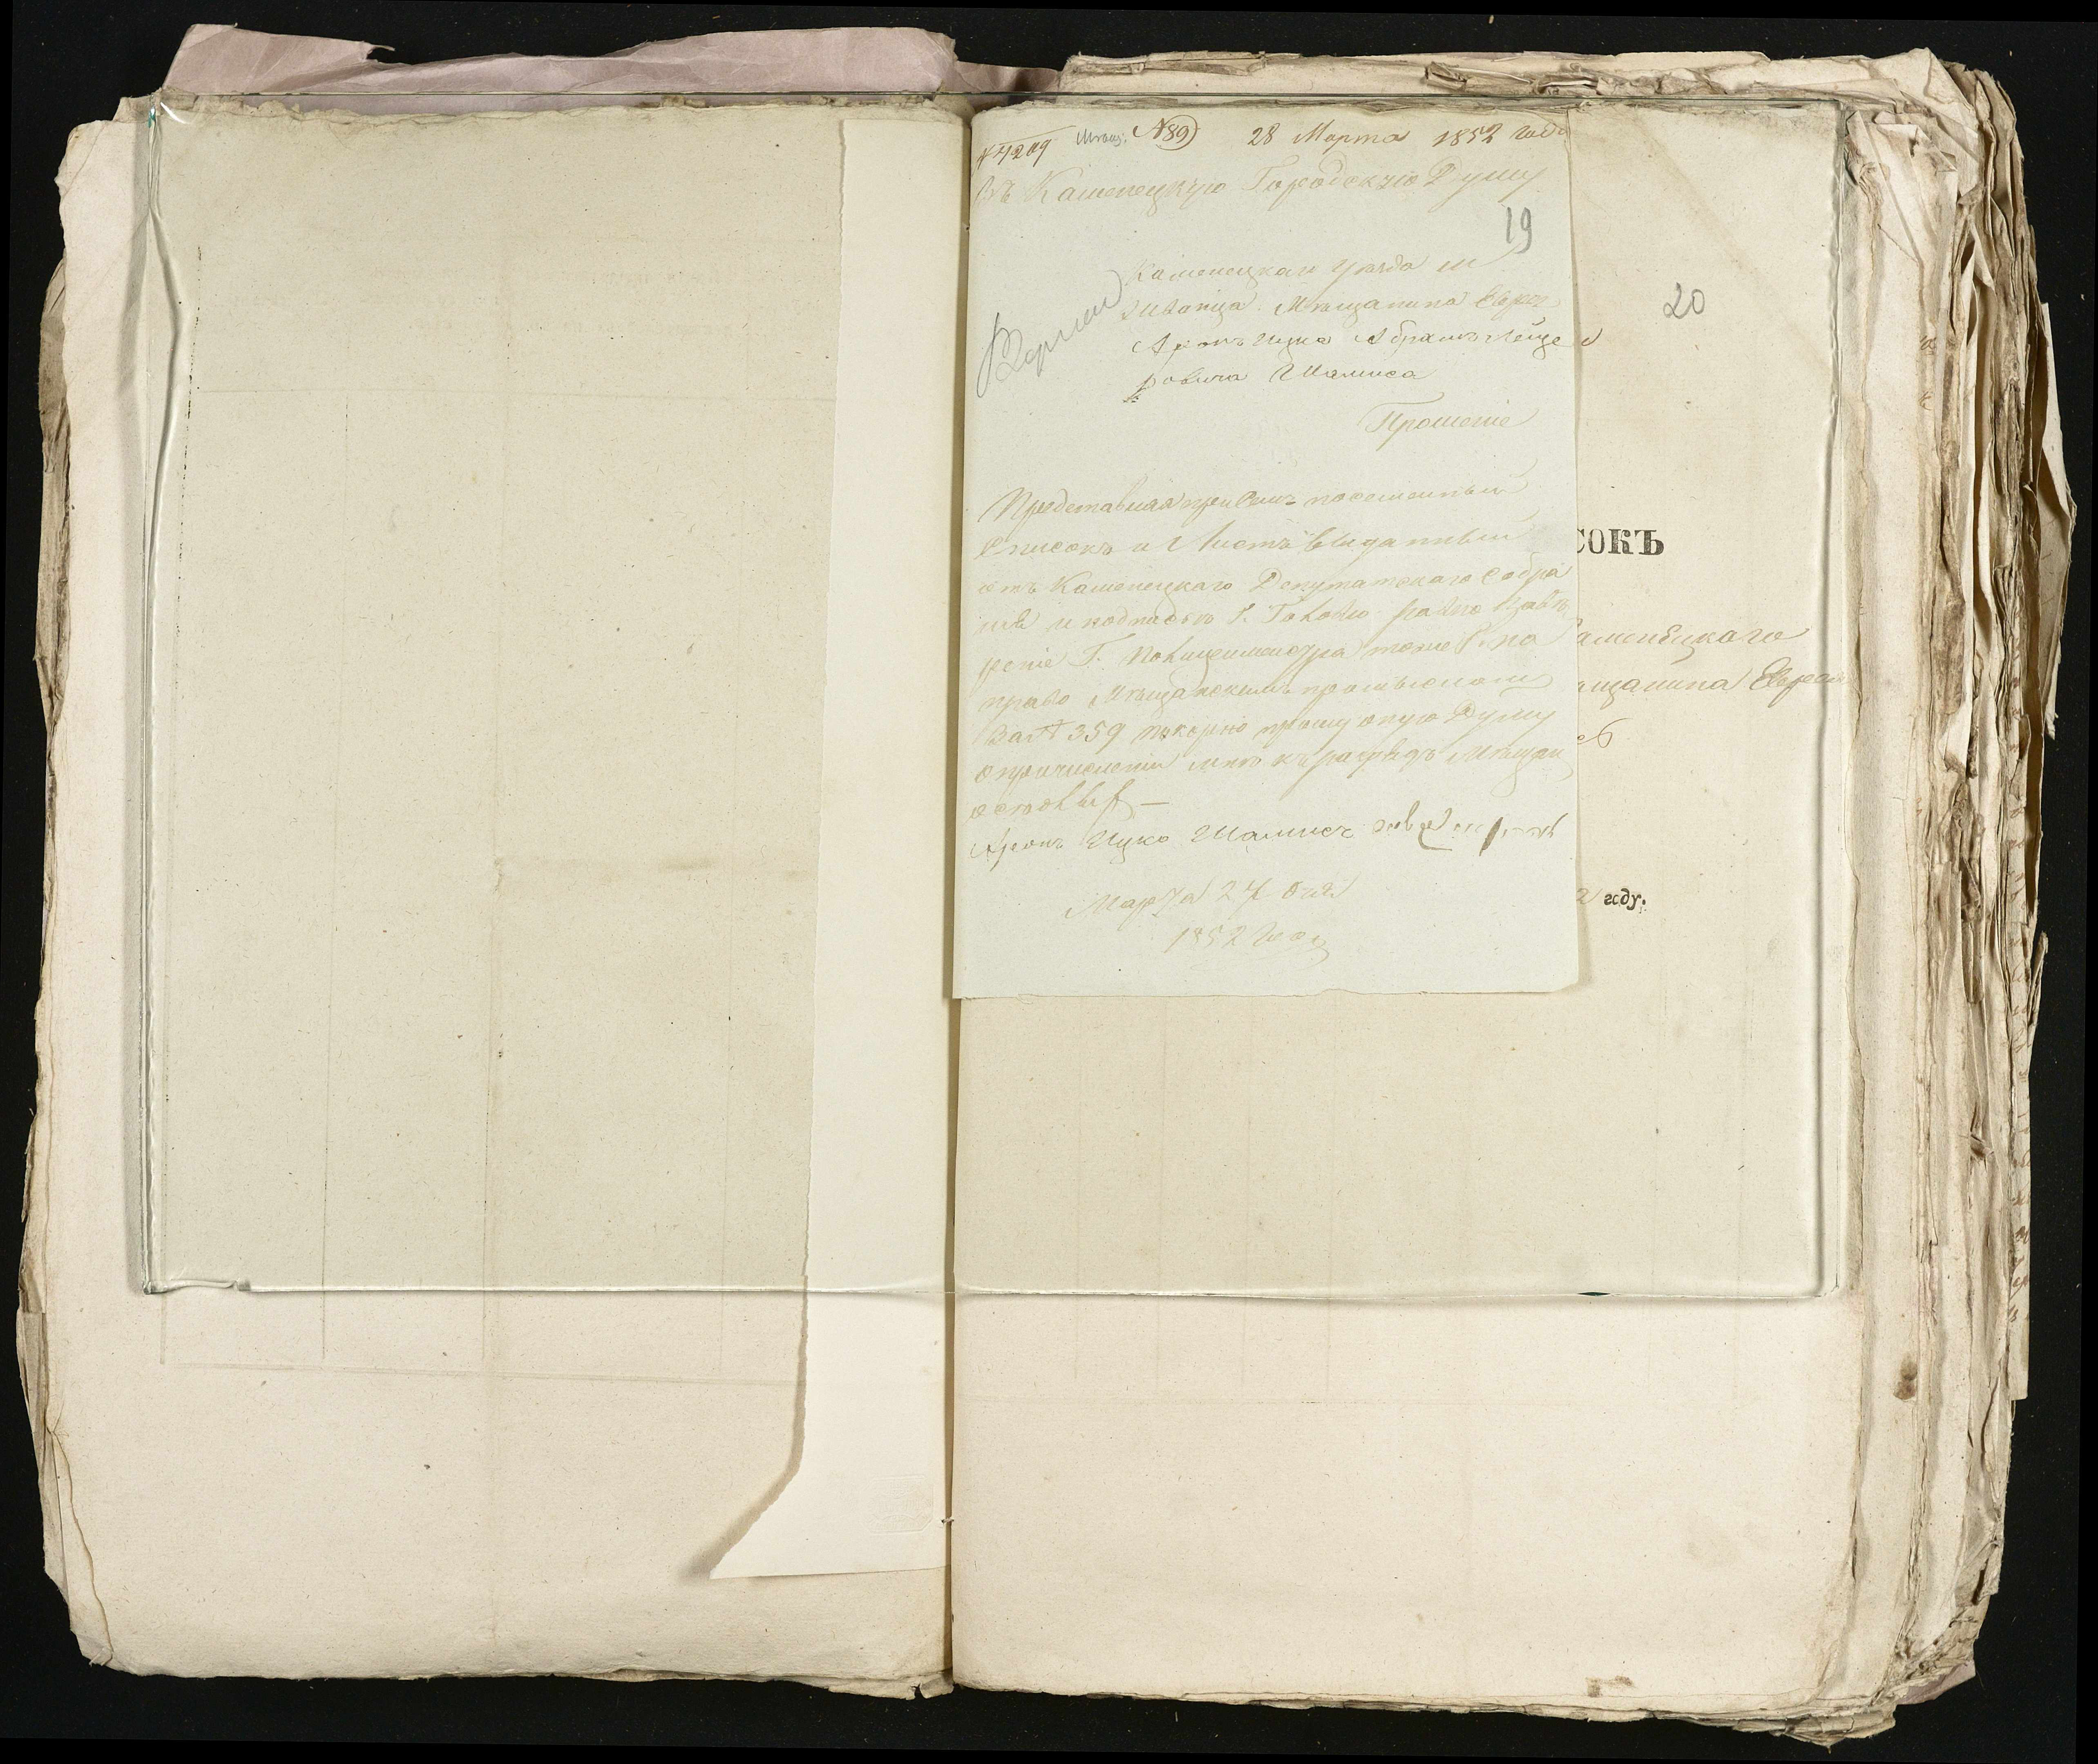 № 4209 №89 28 Марта 1852 года
Въ Каменецкую Городскую Думу
19
Каменецкаго Уѣзда м
Жванца Мѣщанина Еврея
Аронъ Ицка Абрамъ Лейзе
ровича Шамиса
Прошеніе
Представляя при семъ посемейный
Списокъ и Листъ выданный
отъ Каменецкаго Депутатскаго Собра
нія и подписью Г. равно
реніе Г. Полицмейстра на
право Мѣщанскимъ промысломъ
за № 359 покорно прошу оную Думу
о причисленіи мнѣ къ разрядъ Мѣщан
осѣдлых —
Аронъ Ицко Шамисъ
Марта 27 дня
1852 года
20
СОКЪ
аменецкаго
щанина Еврея
2 году.